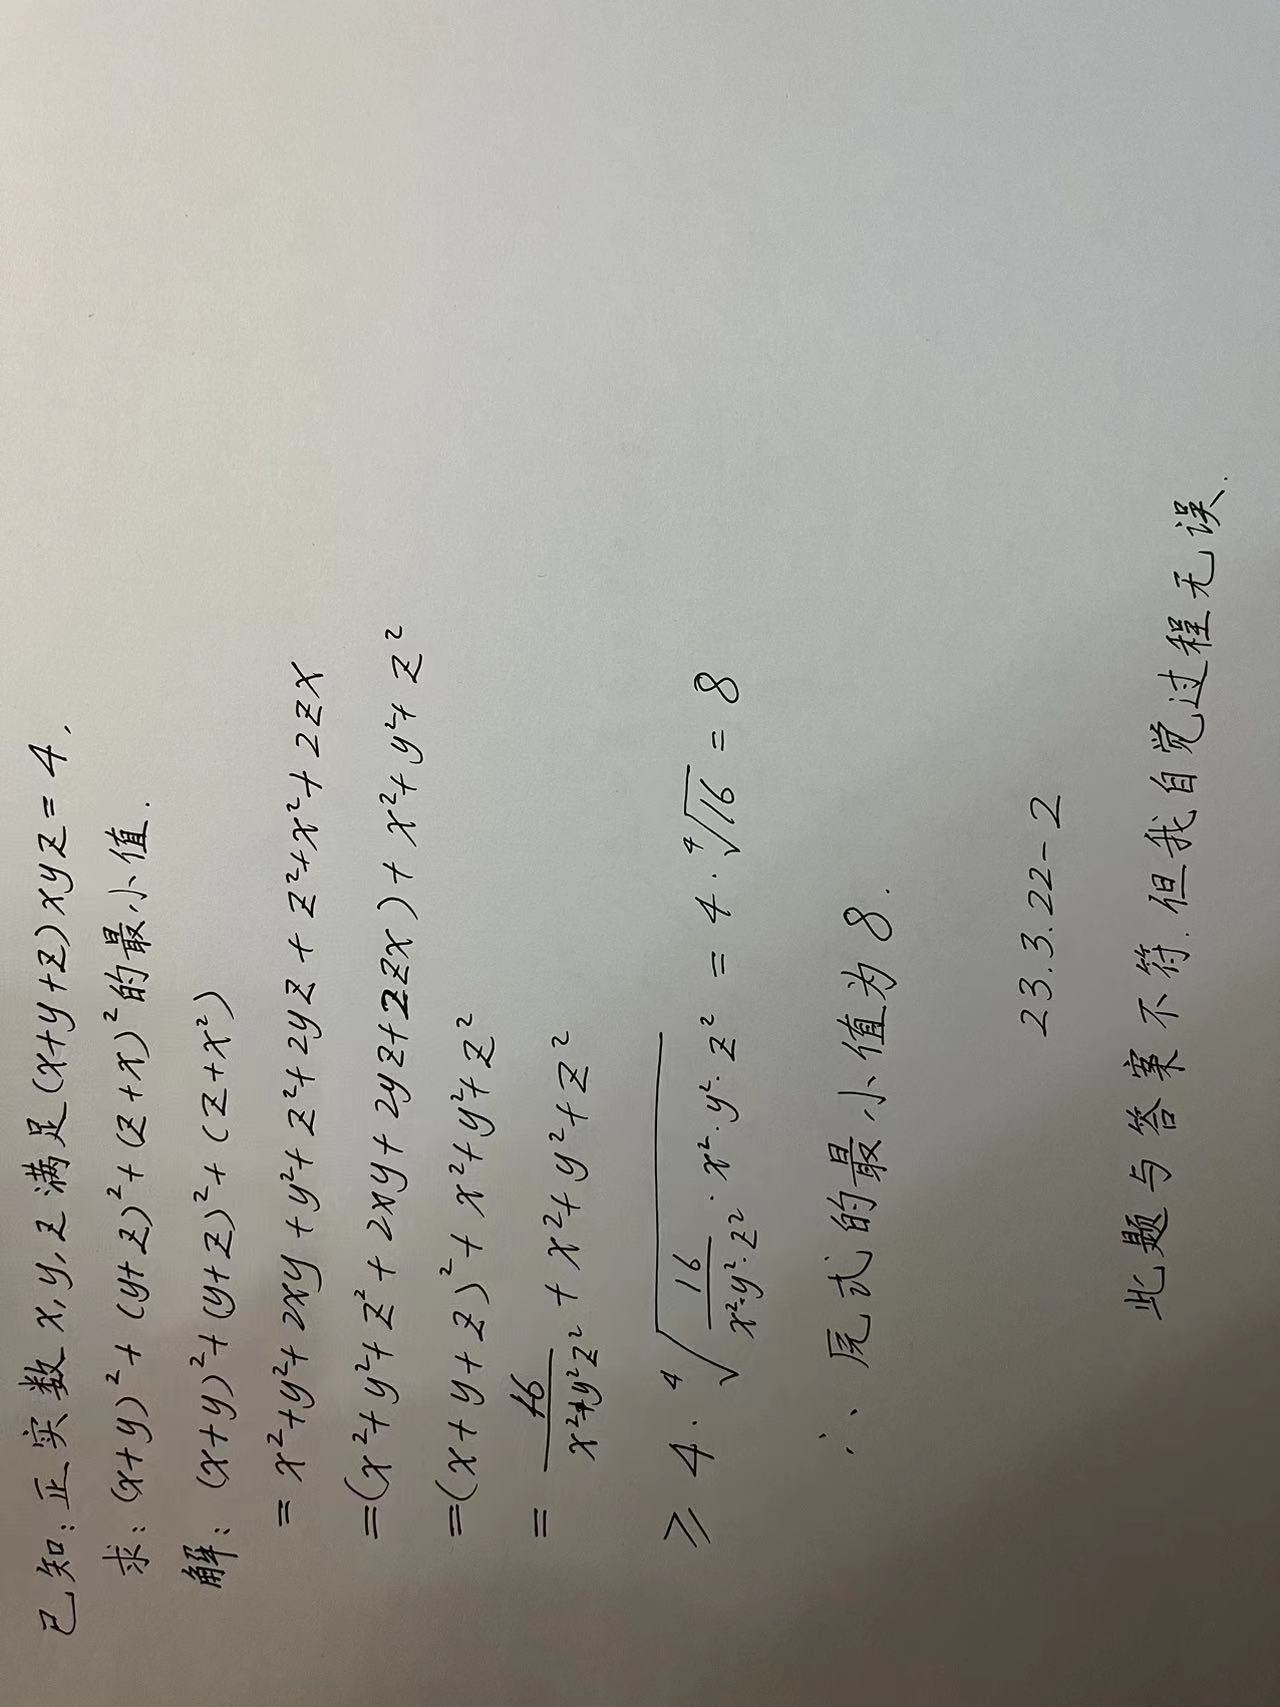 已知:正实数x,y,z满足(x+y+z)xyz=4,
求:(x+y)²+(y+z)²+(z+x)²的最小值.
解:(x+y)²+(y+z)²+(z+x²)
=x²+y²+2xy+y²+z²+2yz+z²+x²+2zx
=(x²+y²+z²+2xy+2yz+2zx)+x²+y²+z²
=(x+y+z)²+x²+y²+z²
=16/(x²y²z²)+x²+y²+z²
≥4·⁴√(16/(x²·y²·z²)·x²·y²·z²)=4·⁴√16=8
∴原式的最小值为8.
23.3.22-2
此题与答案不符.但我自觉过程无误.